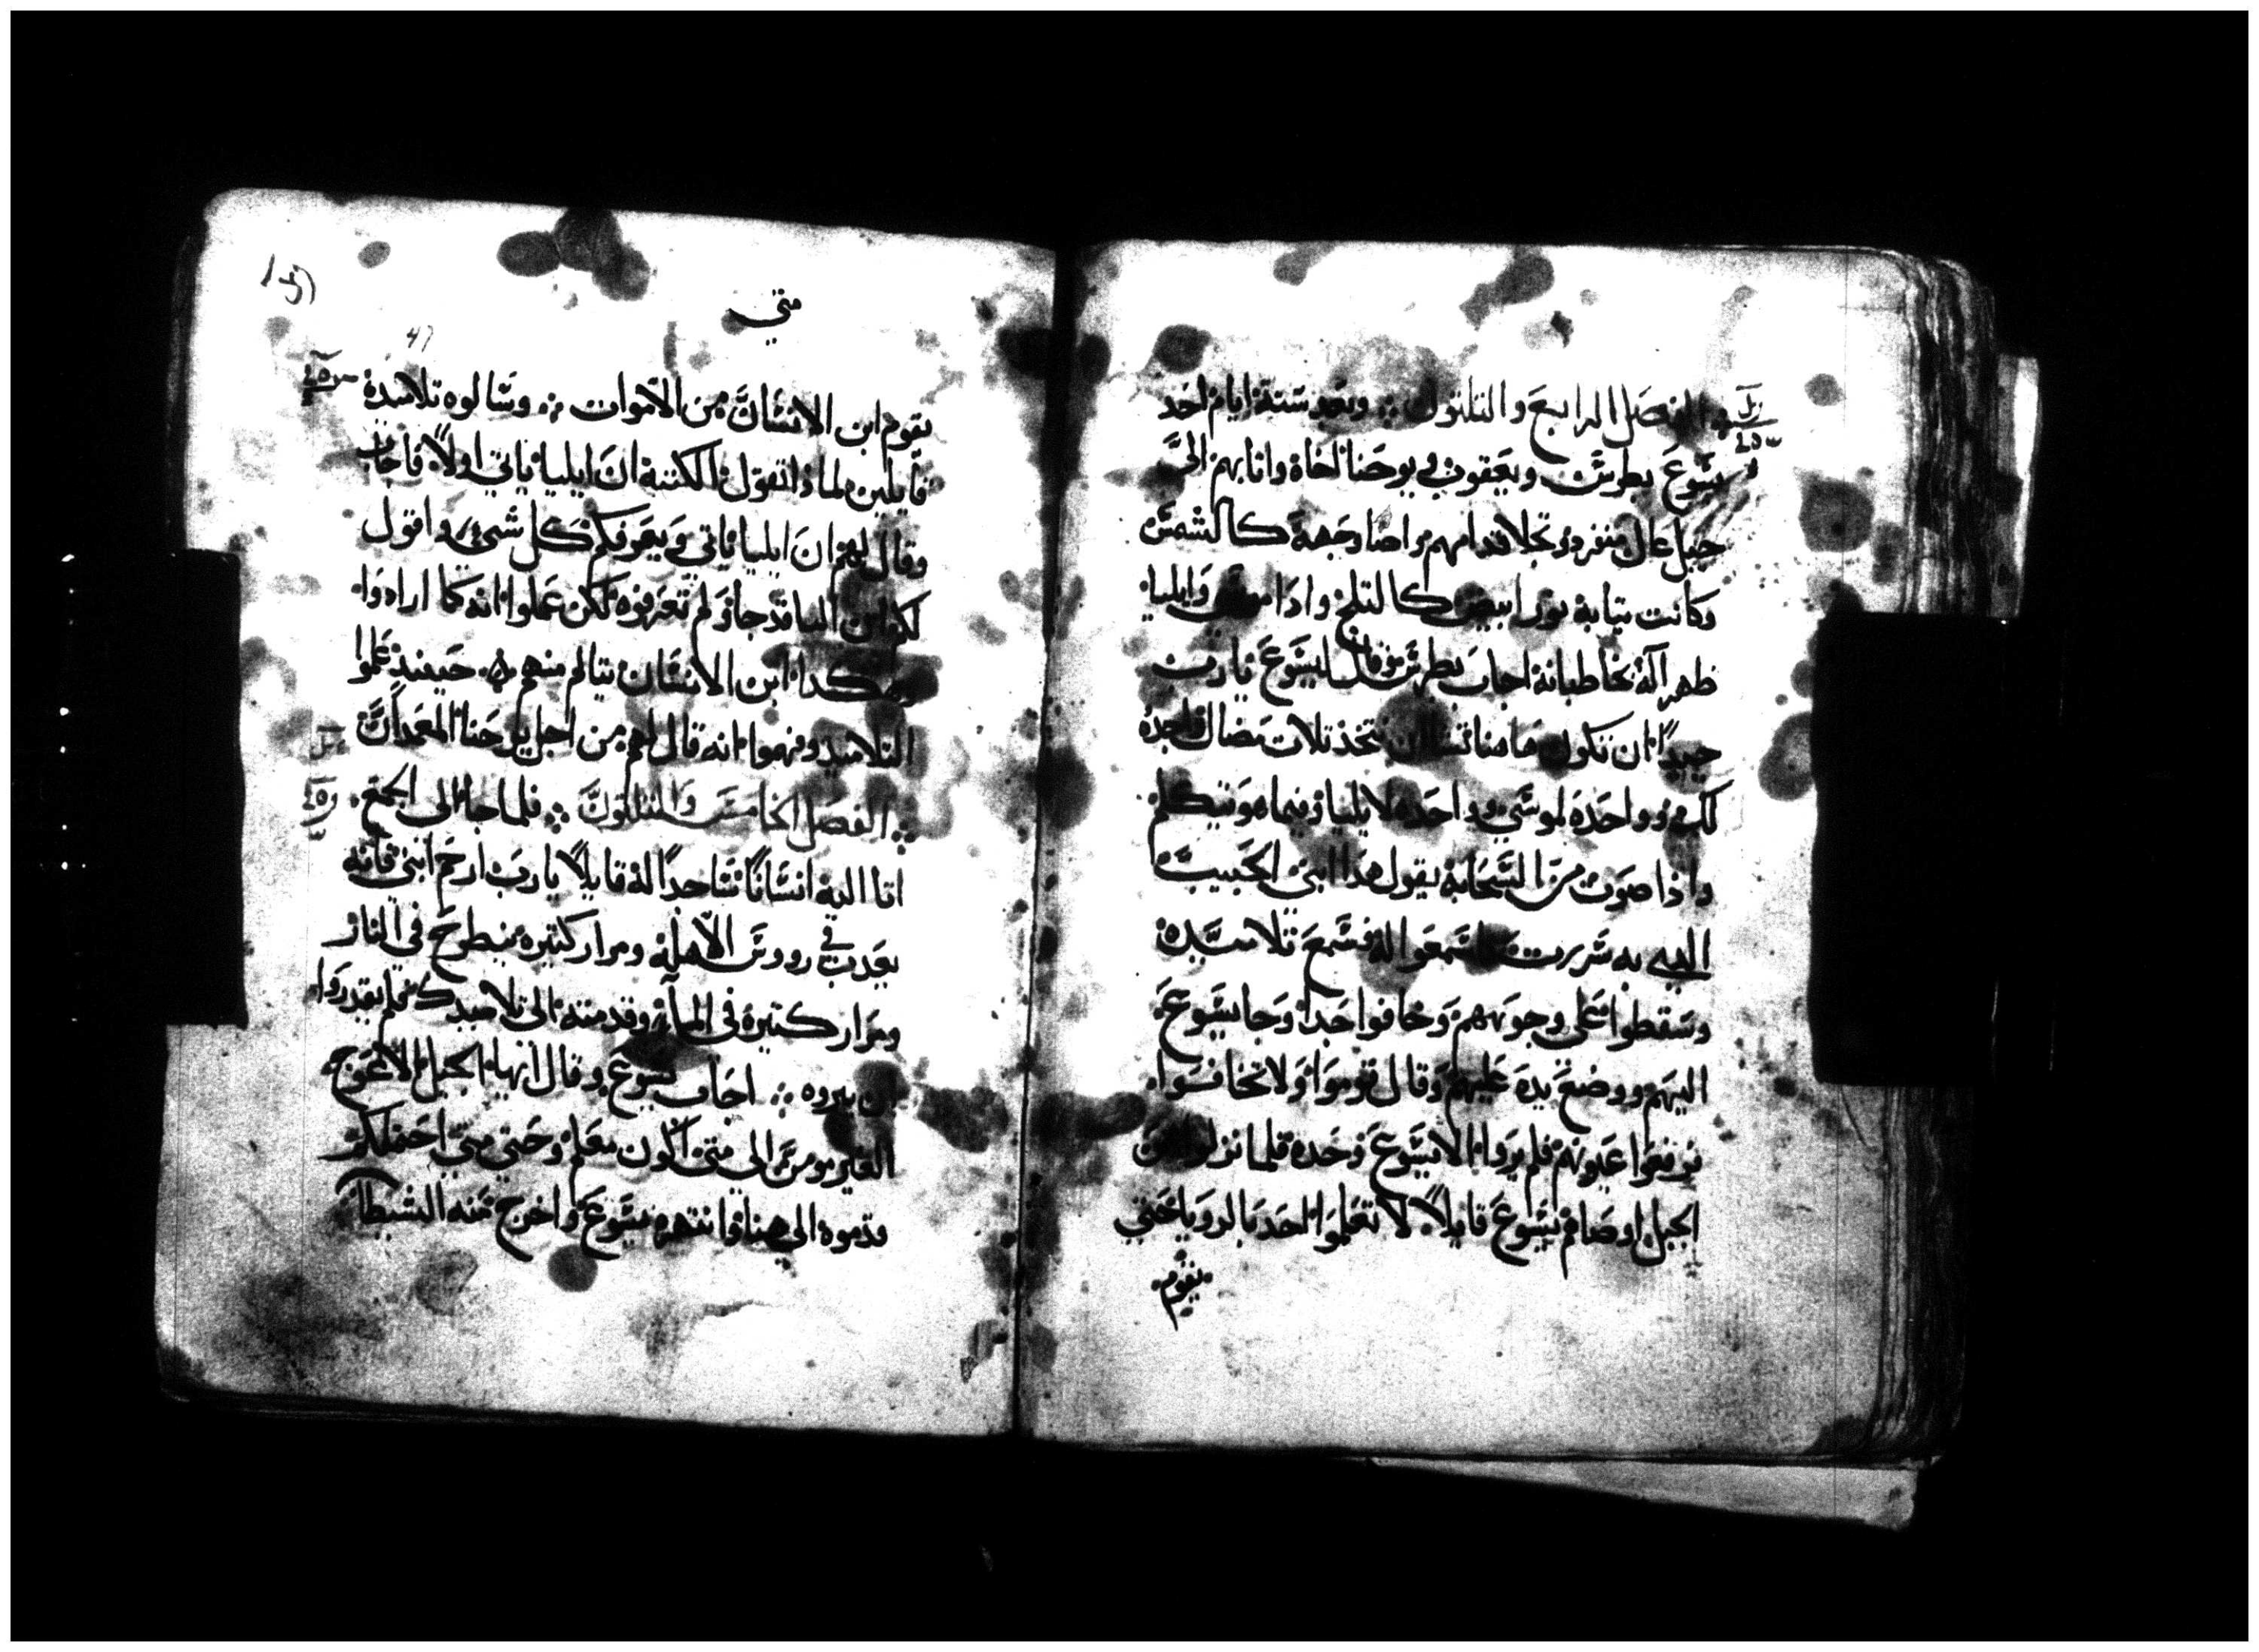 الفصل الرابع والتلتون ؞ وبعد ستة ايام احد
يسوع بطرس ويعقوب ويوحنا اخاه واتا بهم الى
جبل عال منفرد وتجلا قدامهم واضا وجهه كالشمس
وكانت تيابه نور ابيض كالتلج واذا موسى وايليا
ظهرا له يخاطبانه اجاب بطرس وقال ليسوع يارب
جيدًا ان نكون هاهنا تشا ان نتخذ تلات مضال واحده
لك وواحده لموسي وواحده لايليا وفيما هو يتكلم
واذا صوت من السحابه يقول هدا ابني الحبيب
الدي به سررت فاسمعوا له فسمع تلاميده
وسقطوا على وجوههم وخافوا جدا وجا يسوع
اليهم ووضع يده عليهم وقال قوموا ولا تخافوا
فرفعوا عيونهم فلم يروا الا يسوع وحده فلما نزلوا من
الجبل اوصاهم يسوع قايلًا لا تعلموا احد بالرويا حتي
يقوم
متي
47
يقوم ابن الانسان من الاموات ؞ وسالوه تلاميده
قايلين لماذا تقول الكتبة ان ايليا ياتي اولًا فاجاب
وقال لهم ان ايليا ياتي ويعرفكم كل شي واقول
لكم ان ايليا قد جا ولم تعرفوه لكن عملوا به كما ارادوا
وهكدا ابن الانسان يتالم منهم ؞ حينيذ علموا
التلاميد وفهموا انه قال لهم من اجل يوحنا المعمدان
؞ الفصل الخامس والتلتون ؞ فلما جا الى الجمع
اتا اليه انسانًا ساجدًا له قايلًا يارب ارحم ابني فانه
يعدب في رووس الاهله ومرار كتيره ينطرح في النار
ومرار كتيرة في الماء وقدمته الى تلاميدك فلم يقدروا
ان يبروه ؞ اجاب يسوع وقال ايها الجيل الاعوج
الغير مومن الى متي اكون معكم وحتي متي احتملكم
قدموه الى هاهنا فانتهره يسوع واخرج منه الشيطان